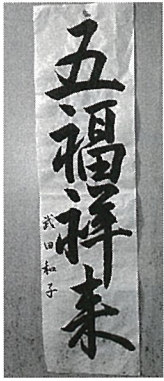 五福祥来
武田和子